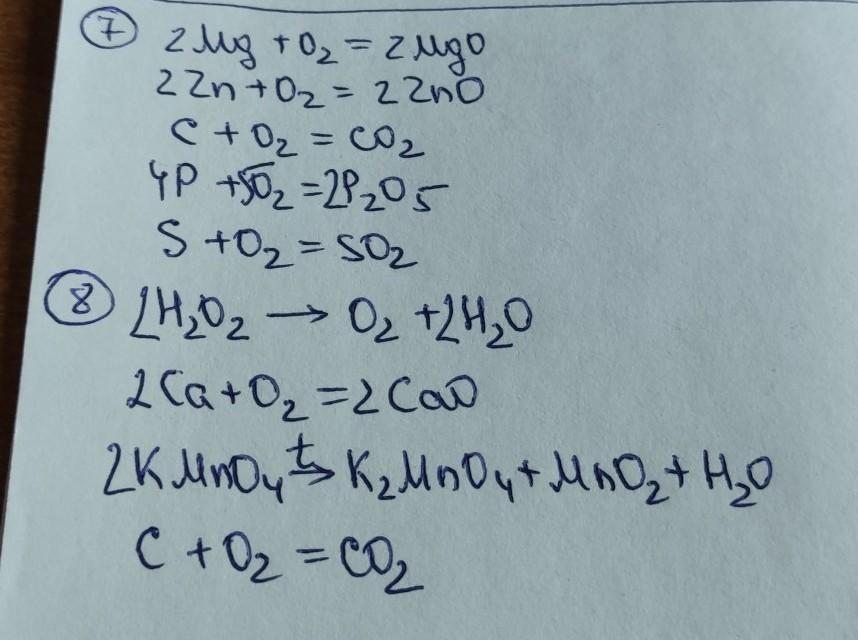 7 2Mg + O₂ = 2MgO
2Zn + O₂ = 2ZnO
C + O₂ = CO₂
4P + 5O₂ = 2P₂O₅
S + O₂ = SO₂
8 2H₂O₂ → O₂ + 2H₂O
2Ca + O₂ = 2CaO
2KMnO₄ t→ K₂MnO₄ + MnO₂ + H₂O
C + O₂ = CO₂